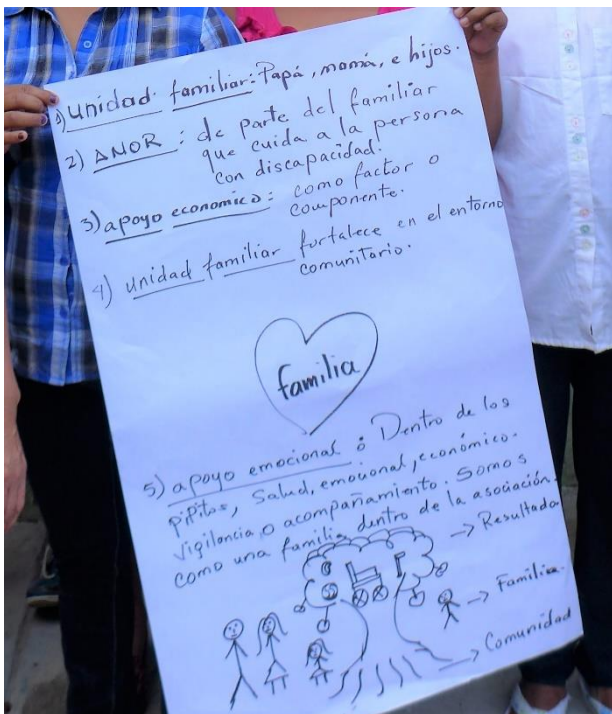 1) unidad familiar: Papá, mamá, e hijos.
2) AMOR : de parte del familiar
que cuida a la persona
con discapacidad.
3) apoyo economico: como factor o
componente.
4) unidad familiar fortalece en el entorno
comunitario.
familia
5) apoyo emocional : Dentro de los
pipitos, Salud, emocional, económico.
vigilancia, o acompañamiento. Somos
como una familia dentro de la asociación.
→ Resultado
→ Familia.
→ Comunidad